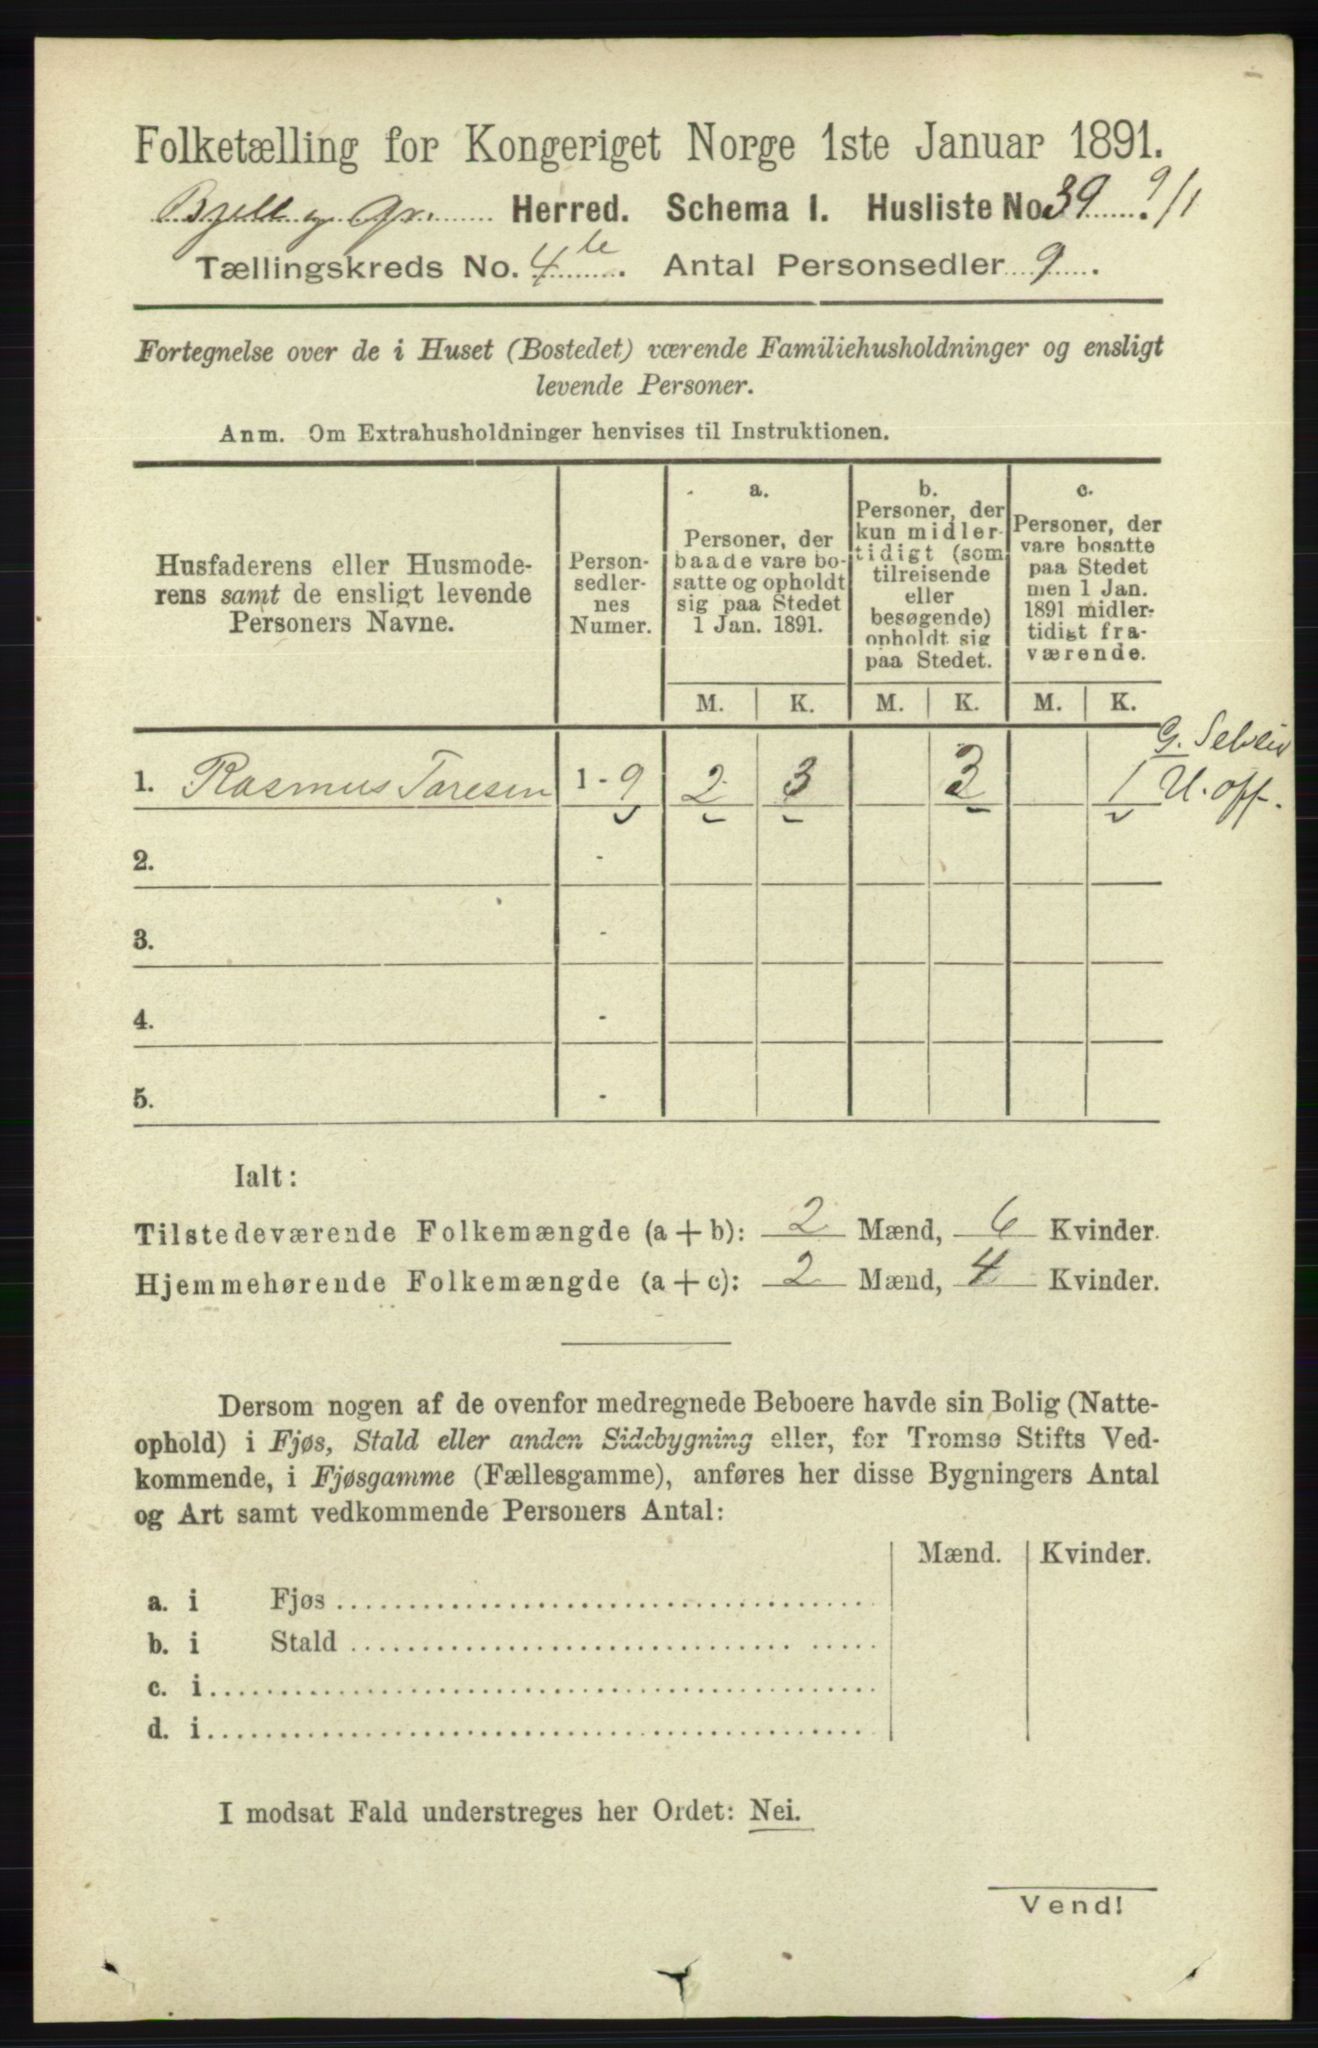 Folketælling for Kongeriget Norge 1ste Januar 1891.
Bjell og Gr. Herred. Schema I. Husliste No. 39 9/1
Tællingskreds No. 4de. Antal Personsedler 9.
Fortegnelse over de i Huset (Bostedet) værende Familiehusholdninger og ensligt
levende Personer.
Anm. Om Extrahusholdninger henvises til Instruktionen.
Husfaderens eller Husmode-
rens samt de ensligt levende
Personers Navne.
Person-
sedler-
nes
Numer.
a.
Personer, der
baade vare bo-
satte og opholdt
sig paa Stedet
1 Jan. 1891.
b.
Personer, der
kun midler-
tidigt (som
tilreisende
eller
besøgende)
opholdt sig
paa Stedet.
c.
Personer, der
vare bosatte
paa Stedet
men 1 Jan.
1891 midler-
tidigt fra-
værende.
M. K. M. K. M. K.
1. Rasmus Taresen 1 - 9 2 3 3 1
G.
U. off.
2. -
3. -
4. -
5. -
Ialt:
Tilstedeværende Folkemængde (a + b): 2 Mænd, 6 Kvinder.
Hjemmehørende Folkemængde (a + c): 2 Mænd, 4 Kvinder.
Dersom nogen af de ovenfor medregnede Beboere havde sin Bolig (Natte-
ophold) i Fjøs, Stald eller anden Sidebygning eller, for Tromsø Stifts Ved-
kommende, i Fjøsgamme (Fællesgamme), anføres her disse Bygningers Antal
og Art samt vedkommende Personers Antal:
Mænd. Kvinder.
a. i Fjøs
b. i Stald
c. i
d. i
I modsat Fald understreges her Ordet: Nei.
Vend!